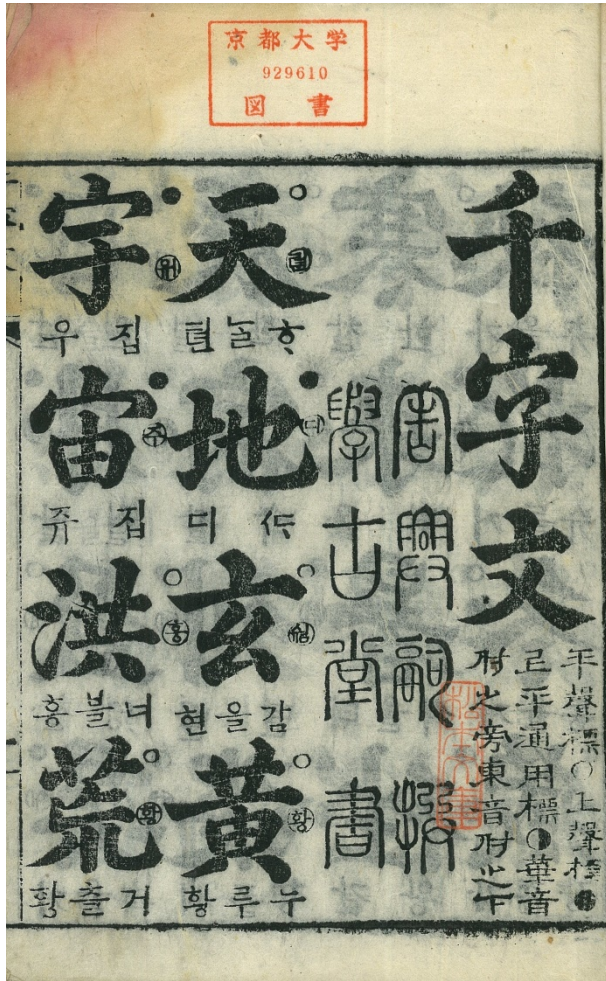 京都大学
929610
図書
千字文
平聲標○上聲標●
平通用標◐華音
附之旁東音附之下
周興嗣撰
學古堂書
天
하늘 텬
地 디
ᄯᅡ 디
玄
감을 현
黃 황
누루 황
宇
집 우
宙 주
집 쥬
洪 훙
너블 홍
荒 황
거츨 황